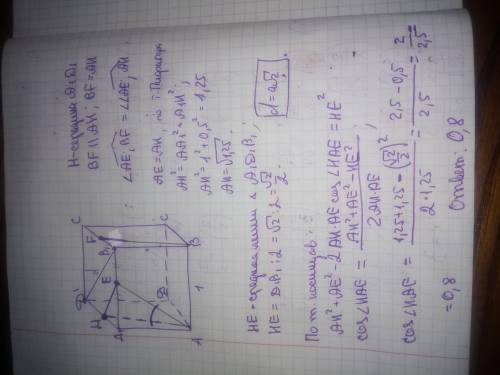 H-середина A₁D₁
BF || AH; BF = AH
∠AE; BF = ∠AE; AH
AE = AH, по т. Пифагора
AH² = AA₁² + A₁H²;
AH² = 1² + 0,5² = 1,25
AH = √1,25
d = a√2
D₁
C
F
B₁
H
E
A₁
d
D
C
B
A
1
HE - средняя линия Δ A₁D₁B₁;
HE = D₁B₁ : 2 = √2 : 2 = √2/2.
По т. косинусов:
AH² + AE² - 2 AH·AE cos∠HAE = HE²
cos∠HAE = (AH² + AE² - HE²)/(2AH·AE);
cos∠HAE = (1,25 + 1,25 - (√2/2)²)/(2·1,25) = (2,5 - 0,5)/2,5 = 2/2,5
= 0,8
Ответ: 0,8